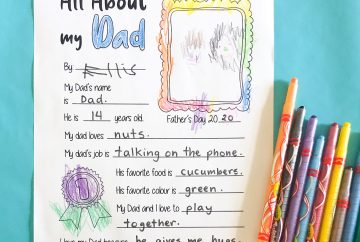 All About
my Dad
By Ellis
My Dad's name
is Dad.
He is 14 years old.
Father's Day 2020
My dad loves nuts.
My dad's job is talking on the phone.
His favorite food is cucumbers.
His favorite colour is green.
My Dad and I love to play
together.
I love my Dad because he gives me hugs.